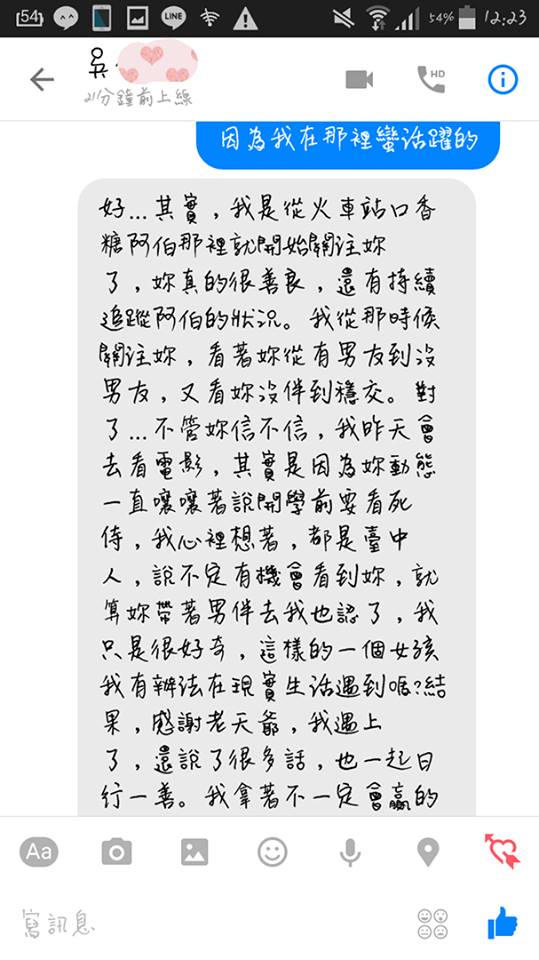 54
LINE
54%
12:23
吳
21分鐘前上線
HD
因為我在那裡蠻活躍的
好...其實，我是從火車站口香
糖阿伯那裡就開始關注妳
了，妳真的很善良，還有持續
追蹤阿伯的狀況。我從那時候
關注妳，看著妳從有男友到沒
男友，又看妳沒伴到穩交。對
了...不管妳信不信，我昨天會
去看電影，其實是因為妳動態
一直嚷嚷著說開學前要看死
侍，我心裡想著，都是臺中
人，說不定有機會看到妳，就
算妳帶著男伴去我也認了，我
只是很好奇，這樣的一個女孩
我有辦法在現實生活遇到嗎?結
果，感謝老天爺，我遇上
了，還說了很多話，也一起日
行一善。我拿著不一定會贏的
Aa
寫訊息